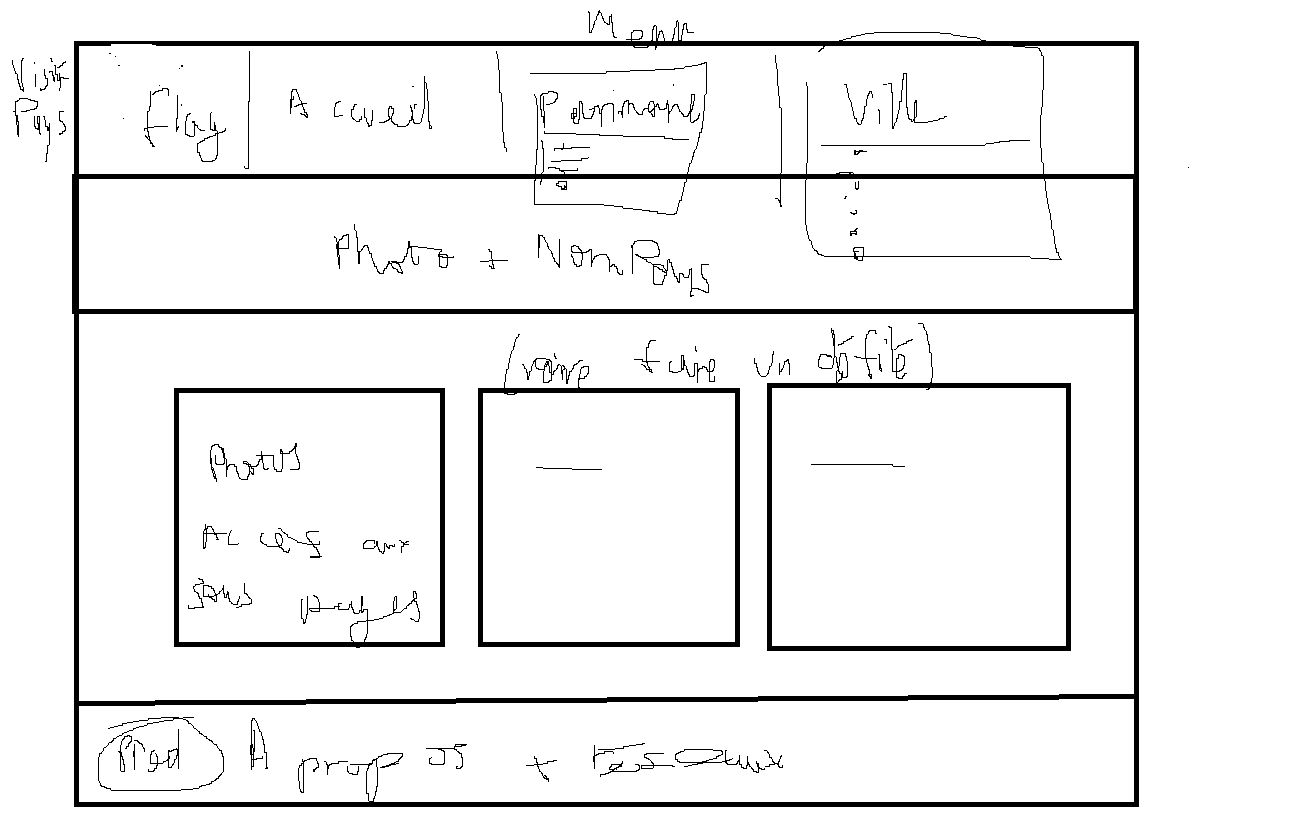 Menu
Visit
Pays
Flag
Accueil
Ville
Photo + Nom Pays
(voire faire un défilé)
Photos
Accès aux
sous pages
Pied
A propos + réseaux